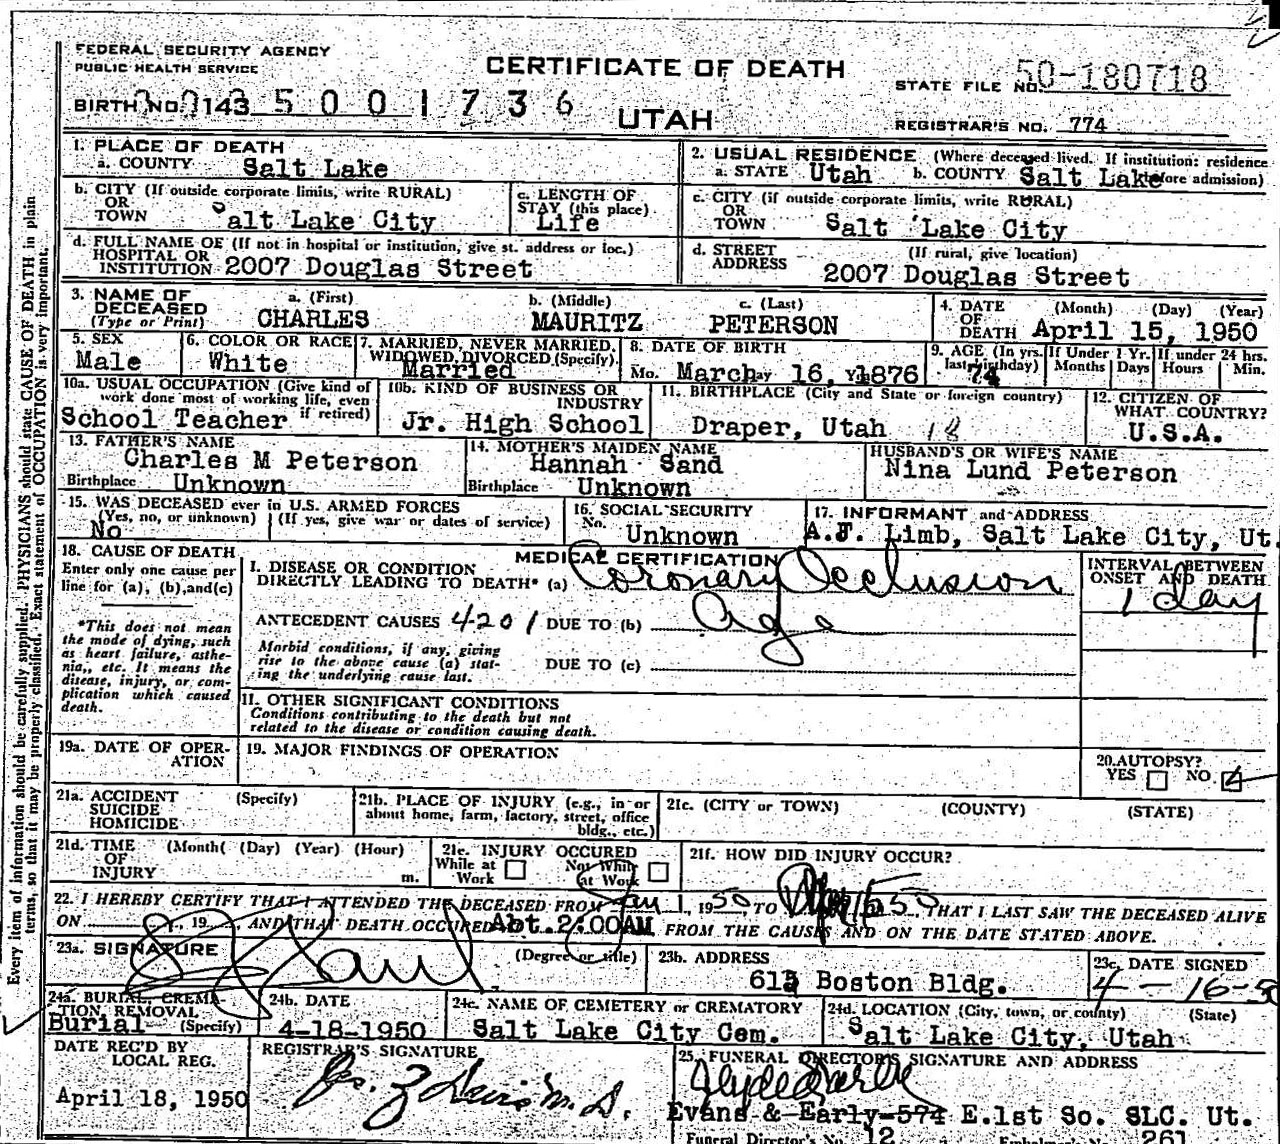 FEDERAL SECURITY AGENCY
PUBLIC HEALTH SERVICE
CERTIFICATE OF DEATH
STATE FILE NO. 50-180718
BIRTH NO. 143 5 0 0 1 7 3 6
UTAH
REGISTRAR'S NO. 774
1. PLACE OF DEATH
a. COUNTY Salt Lake
2. USUAL RESIDENCE (Where deceased lived. If institution: residence
a. STATE Utah b. COUNTY Salt Lake before admission)
b. CITY (If outside corporate limits, write RURAL)
OR
TOWN Salt Lake City
c. LENGTH OF
STAY (this place)
Life
c. CITY (if outside corporate limits, write RURAL)
OR
TOWN Salt Lake City
d. FULL NAME OF (If not in hospital or institution, give st. address or loc.)
HOSPITAL OR
INSTITUTION 2007 Douglas Street
d. STREET (If rural, give location)
ADDRESS 2007 Douglas Street
3. NAME OF a. (First) b. (Middle) c. (Last)
DECEASED
(Type or Print) CHARLES MAURITZ PETERSON
4. DATE (Month) (Day) (Year)
OF
DEATH April 15, 1950
5. SEX
Male
6. COLOR OR RACE
White
7. MARRIED, NEVER MARRIED,
WIDOWED, DIVORCED (Specify)
Married
8. DATE OF BIRTH
Mo. March Day 16, Yr. 1876
9. AGE (In yrs.
last birthday)
74
If Under 1 Yr.
Months Days
If under 24 hrs.
Hours Min.
10a. USUAL OCCUPATION (Give kind of
work done most of working life, even
if retired)
School Teacher
10b. KIND OF BUSINESS OR
INDUSTRY
Jr. High School
11. BIRTHPLACE (City and State or foreign country)
Draper, Utah 18
12. CITIZEN OF
WHAT COUNTRY?
U.S.A.
13. FATHER'S NAME
Charles M Peterson
Birthplace Unknown
14. MOTHER'S MAIDEN NAME
Hannah Sand
Birthplace Unknown
HUSBAND'S OR WIFE'S NAME
Nina Lund Peterson
15. WAS DECEASED ever in U.S. ARMED FORCES
(Yes, no, or unknown) (If yes, give war or dates of service)
No
16. SOCIAL SECURITY
No. Unknown
17. INFORMANT and ADDRESS
A.F. Limb, Salt Lake City, Ut.
18. CAUSE OF DEATH
Enter only one cause per
line for (a), (b), and (c)
*This does not mean
the mode of dying, such
as heart failure, asthe-
nia, etc. It means the
disease, injury, or com-
plication which caused
death.
MEDICAL CERTIFICATION
I. DISEASE OR CONDITION
DIRECTLY LEADING TO DEATH* (a) Coronary Occlusion
ANTECEDENT CAUSES 4201 DUE TO (b) Age
Morbid conditions, if any, giving
rise to the above cause (a) stat-
ing the underlying cause last.
DUE TO (c)
INTERVAL BETWEEN
ONSET AND DEATH
1 day
11. OTHER SIGNIFICANT CONDITIONS
Conditions contributing to the death but not
related to the disease or condition causing death.
19a. DATE OF OPER-
ATION
19. MAJOR FINDINGS OF OPERATION
20. AUTOPSY?
YES NO
21a. ACCIDENT (Specify)
SUICIDE
HOMICIDE
21b. PLACE OF INJURY (e.g., in or
about home, farm, factory, street, office
bldg., etc.)
21c. (CITY or TOWN) (COUNTY) (STATE)
21d. TIME (Month( (Day) (Year) (Hour)
OF
INJURY m.
21e. INJURY OCCURED
While at Work Not While at Work
21f. HOW DID INJURY OCCUR?
22. I HEREBY CERTIFY THAT I ATTENDED THE DECEASED FROM Jan 1, 1950, TO 1950, THAT I LAST SAW THE DECEASED ALIVE
ON , 19 , AND THAT DEATH OCCURED Abt. 2:00AM FROM THE CAUSES AND ON THE DATE STATED ABOVE.
23a. SIGNATURE (Degree or title)
23b. ADDRESS
615 Boston Bldg.
23c. DATE SIGNED
4-16-50
24a. BURIAL, CREMA-
TION, REMOVAL
Burial (Specify)
24b. DATE
4-18-1950
24c. NAME OF CEMETERY or CREMATORY
Salt Lake City Cem.
24d. LOCATION (City, town, or county) (State)
Salt Lake City, Utah
DATE REC'D BY
LOCAL REG.
April 18, 1950
REGISTRAR'S SIGNATURE
25. FUNERAL DIRECTOR'S SIGNATURE AND ADDRESS
Evans & Early-574 E.1st So. SLC. Ut.
Funeral Director's No. 12 Embalmer's No. 261
Every item of information should be carefully supplied. PHYSICIANS should state CAUSE OF DEATH in plain
terms, so that it may be properly classified. Exact statement of OCCUPATION is very important.